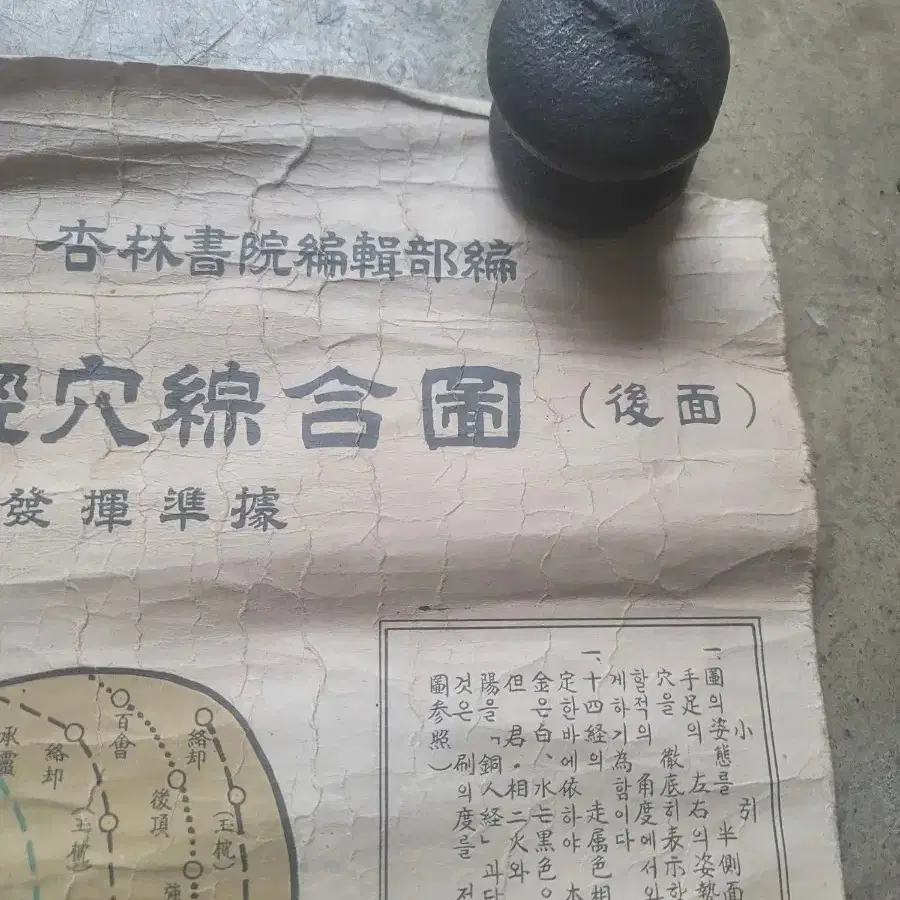 杏林書院編輯部編
穴綜合圖（後面）
發揮準據
小引
一、圖의 姿態를 半側面
手足의 左右의 姿勢
穴을 徹底히 表示하
할적의 角度에서와
게하기爲함이다
一、十四経의 走属色相
定한바에依하야
金은白、水는黒色으
但 君・相二火와
陽을「銅人経」과
것은 刷의度를
圖参照）
絡却
(玉枕)
百會
後頂
強
絡却
(玉枕)
承靈